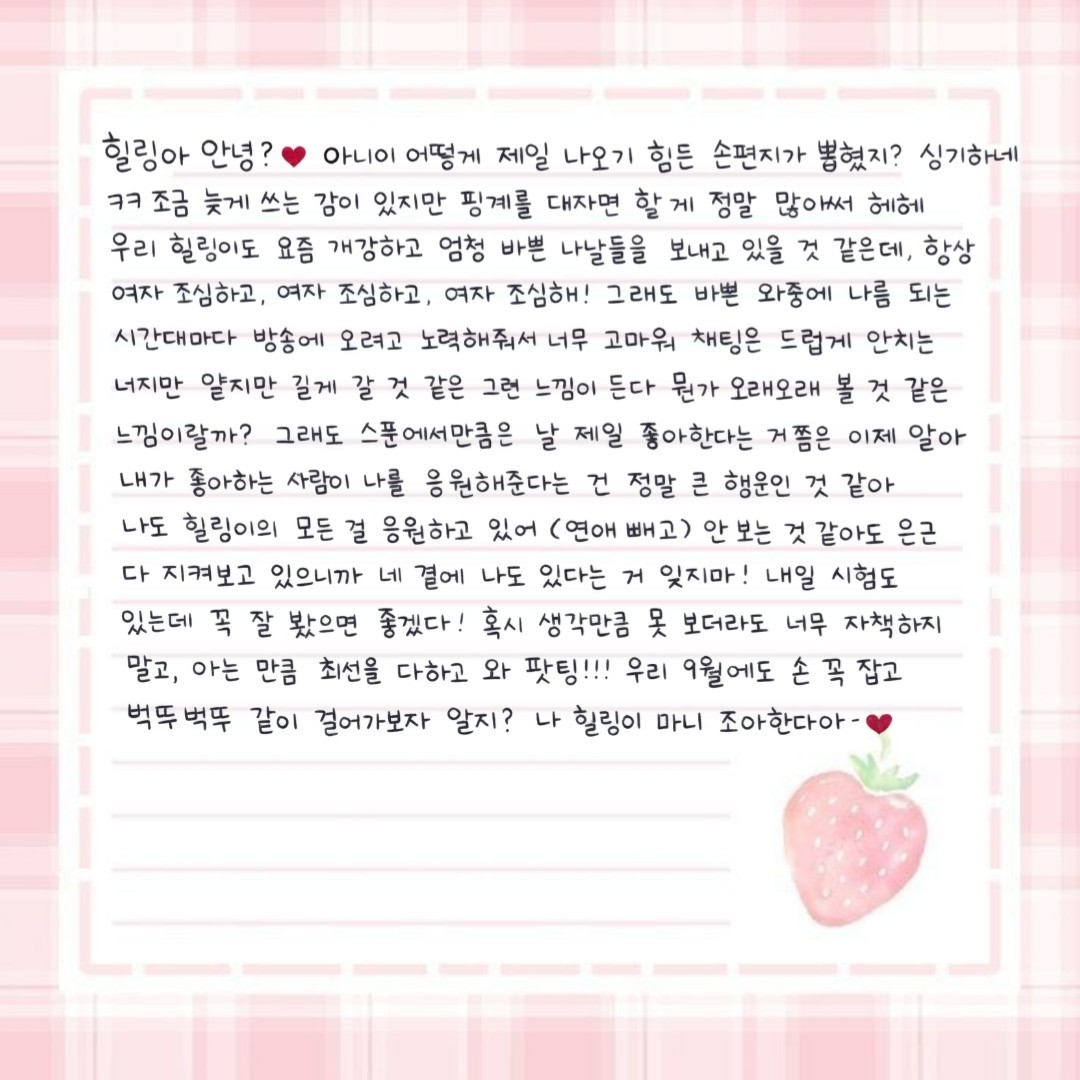 힐링아 안녕?♥ 아니이 어떻게 제일 나오기 힘든 손편지가 뽑혔지? 싱기하네
ㅋㅋ 조금 늦게 쓰는 감이 있지만 핑계를 대자면 할 게 정말 많아써 헤헤
우리 힐링이도 요즘 개강하고 엄청 바쁜 나날들을 보내고 있을 것 같은데, 항상
여자 조심하고, 여자 조심하고, 여자 조심해! 그래도 바쁜 와중에 나름 되는
시간대마다 방송에 오려고 노력해줘서 너무 고마워 채팅은 드럽게 안치는
너지만 얄지만 길게 갈 것 같은 그런 느낌이 든다 뭔가 오래오래 볼 것 같은
느낌이랄까? 그래도 스푼에서만큼은 날 제일 좋아한다는 거쯤은 이제 알아
내가 좋아하는 사람이 나를 응원해준다는 건 정말 큰 행운인 것 같아
나도 힐링이의 모든 걸 응원하고 있어 (연애 빼고) 안 보는 것 같아도 은근
다 지켜보고 있으니까 네 곁에 나도 있다는 거 잊지마! 내일 시험도
있는데 꼭 잘 봤으면 좋겠다! 혹시 생각만큼 못 보더라도 너무 자책하지
말고, 아는 만큼 최선을 다하고 와 팟팅!!! 우리 9월에도 손 꼭 잡고
벅뚜벅뚜 같이 걸어가보자 알지? 나 힐링이 마니 조아한다아-♥